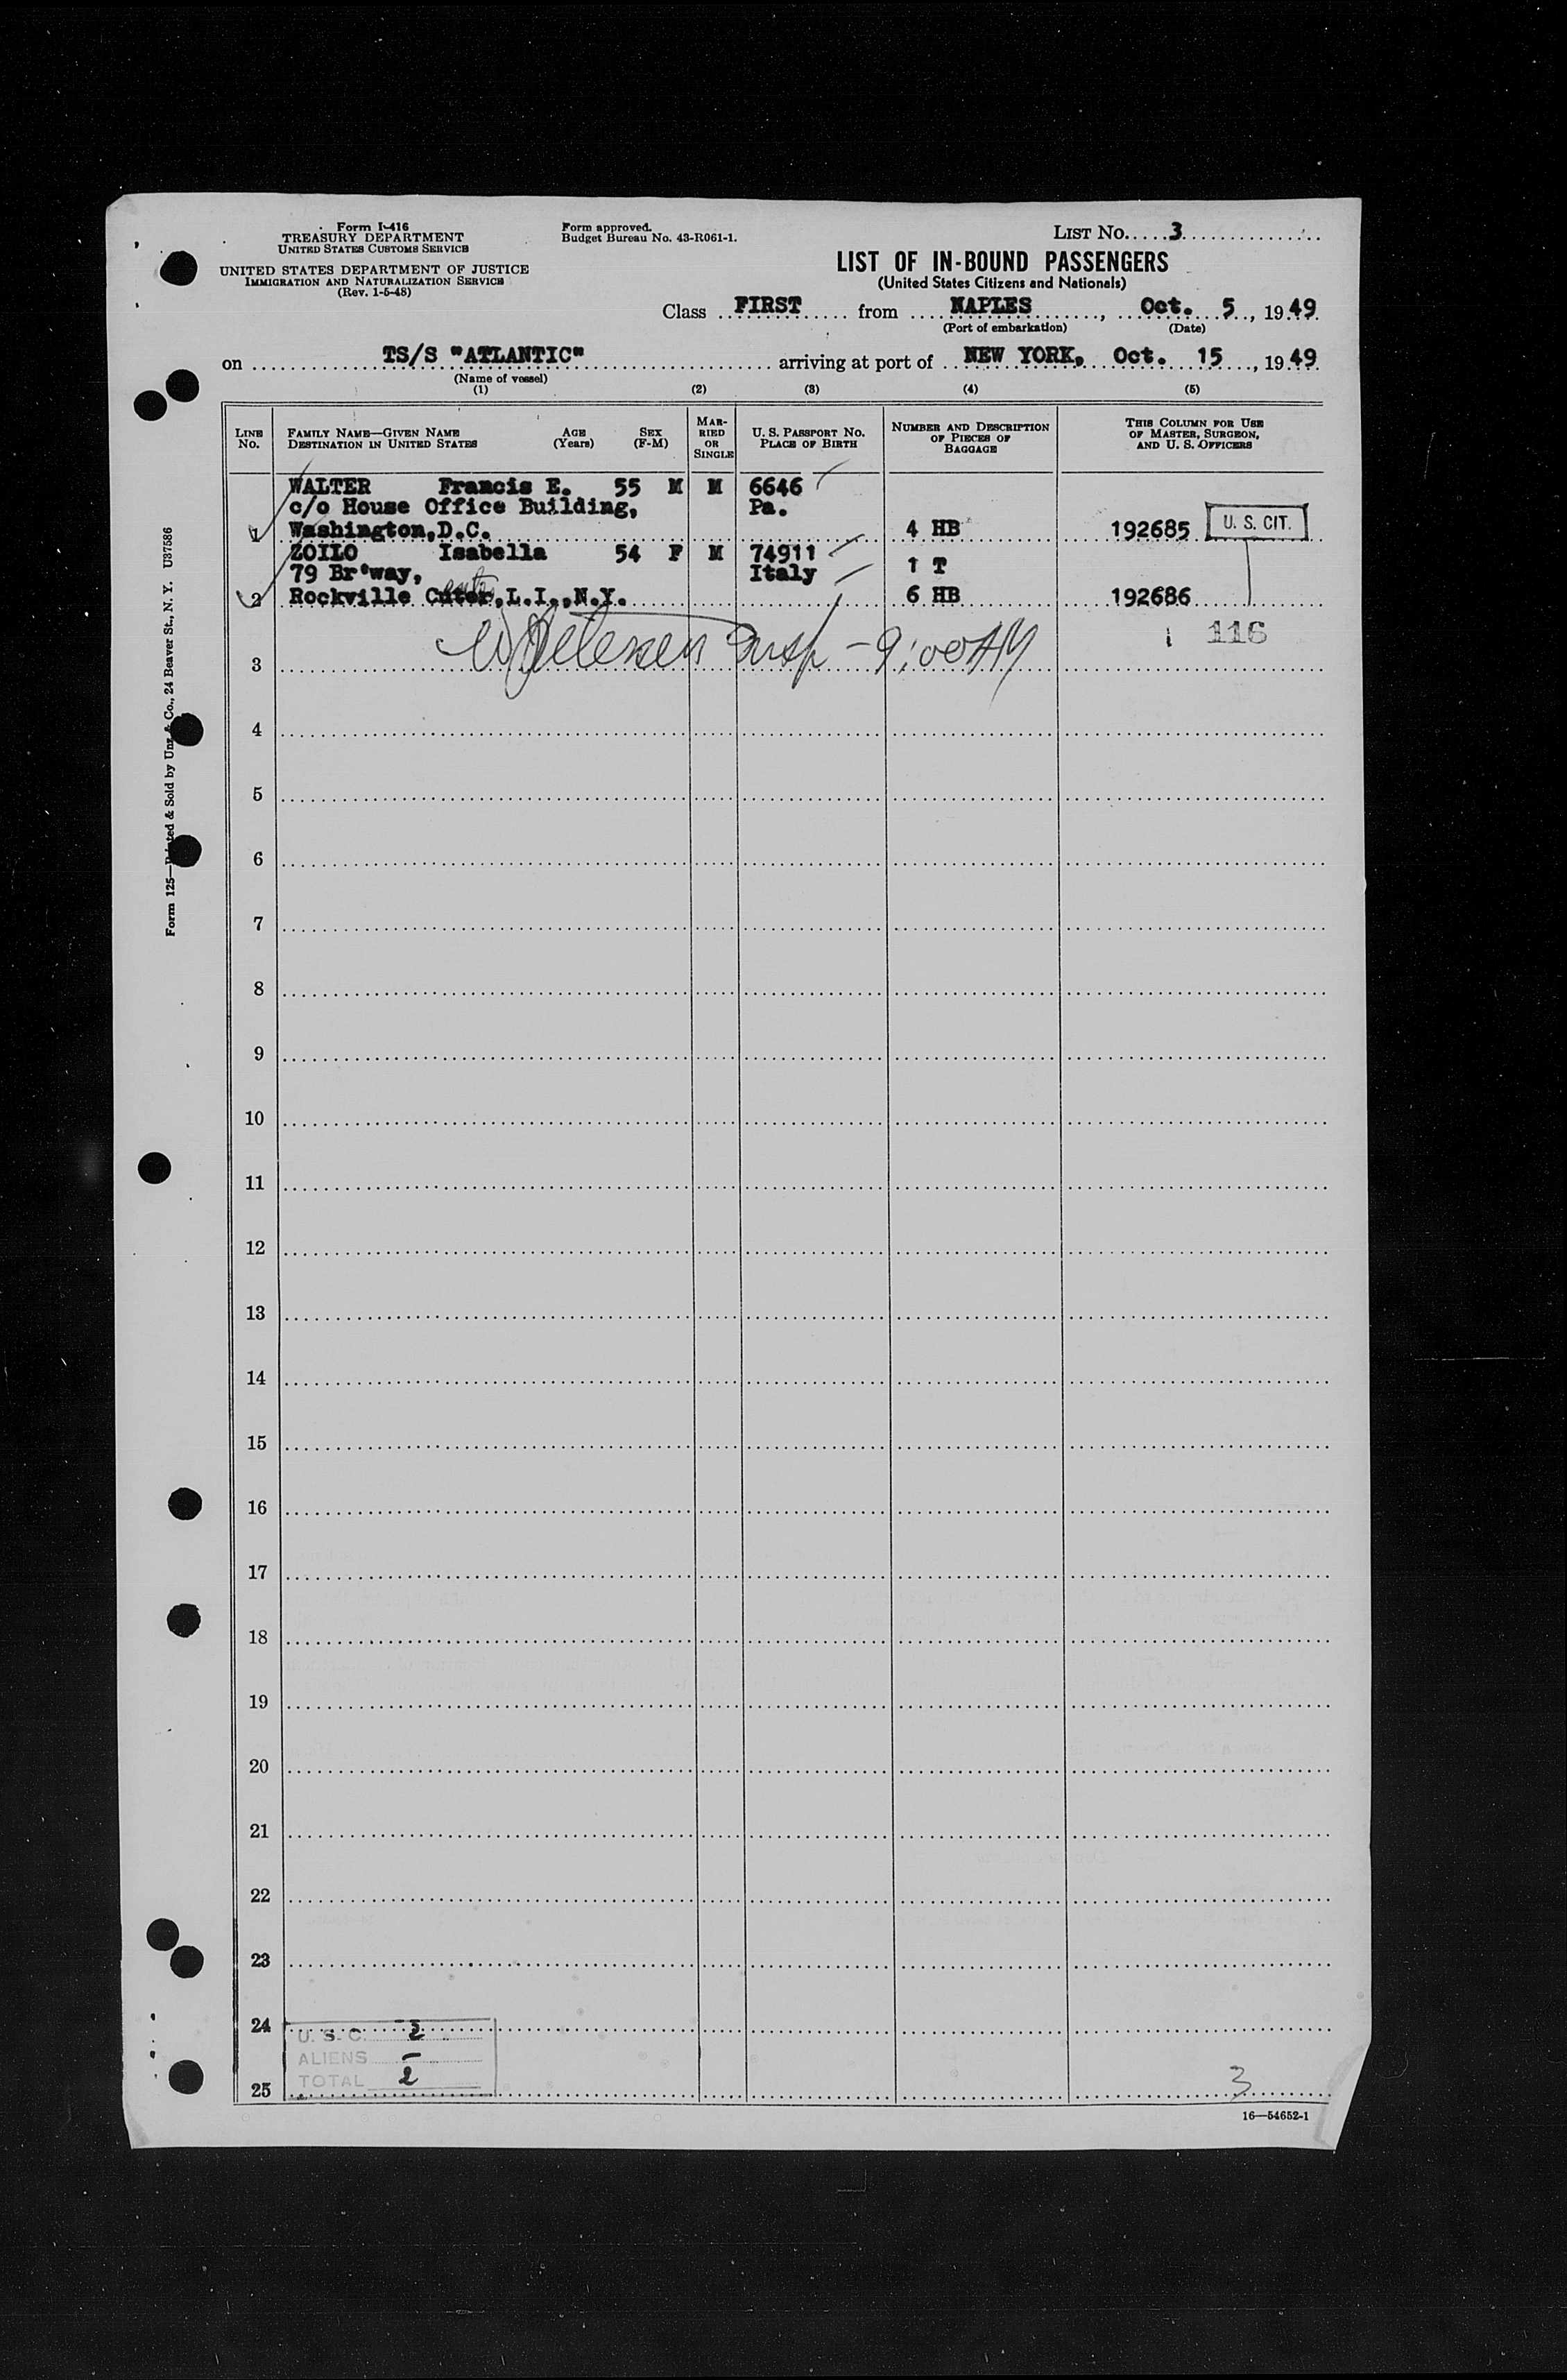 Form I-416
TREASURY DEPARTMENT
UNITED STATES CUSTOMS SERVICE
UNITED STATES DEPARTMENT OF JUSTICE
IMMIGRATION AND NATURALIZATION SERVICE
(Rev. 1-5-48)
Form approved.
Budget Bureau No. 43-R061-1.
LIST No. 3
LIST OF IN-BOUND PASSENGERS
(United States Citizens and Nationals)
Class FIRST from NAPLES, Oct. 5, 1949
(Port of embarkation) (Date)
on TS/S "ATLANTIC" arriving at port of NEW YORK, Oct. 15, 1949
(Name of vessel)
(1) (2) (3) (4) (5)
LINE No. FAMILY NAME—GIVEN NAME DESTINATION IN UNITED STATES AGE (Years) SEX (F-M) MARRIED OR SINGLE U. S. PASSPORT NO. PLACE OF BIRTH NUMBER AND DESCRIPTION OF PIECES OF BAGGAGE THIS COLUMN FOR USE OF MASTER, SURGEON, AND U. S. OFFICERS
WALTER Francis E. 55 M M 6646
c/o House Office Building, Pa.
1 Washington,D.C. 4 HB 192685 U. S. CIT.
ZOILO Isabella 54 F M 74911
79 Br'way, Italy 1 T
2 Rockville Cnter,L.I.,N.Y. 6 HB 192686
116
3 Insp - 9:00 AM
4
5
6
7
8
9
10
11
12
13
14
15
16
17
18
19
20
21
22
23
24 U. S. C. 2
ALIENS –
TOTAL 2
25 3
16—54652-1
Form 125—Printed & Sold by Unz & Co., 24 Beaver St., N. Y. U37586